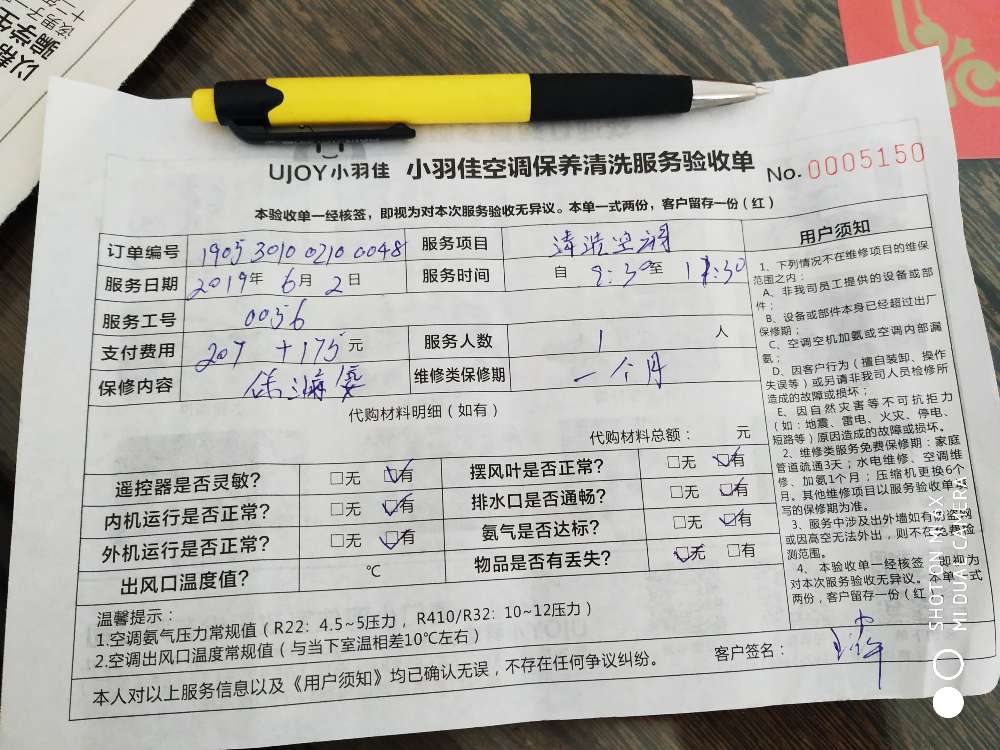 以帮
骗学生
十二年
UJOY小羽佳 小羽佳空调保养清洗服务验收单 No. 0005150
本验收单一经核签，即视为对本次服务验收无异议。本单一式两份，客户留存一份（红）
订单编号 1905 3010 0210 0048 服务项目 清洗空调
服务日期 2019年 6月 2日 服务时间 自 9:30至 11:30
服务工号 0056
支付费用 207 +175元 服务人数 1 人
保修内容 维修类保修期 一个月
代购材料明细（如有）
代购材料总额： 元
遥控器是否灵敏？ □无 ☑有 摆风叶是否正常？ □无 ☑有
内机运行是否正常？ □无 ☑有 排水口是否通畅？ □无 ☑有
外机运行是否正常？ □无 ☑有 氨气是否达标？ □无 ☑有
出风口温度值？ ℃ 物品是否有丢失？ ☑无 □有
温馨提示：
1.空调氨气压力常规值（R22：4.5~5压力，R410/R32：10~12压力）
2.空调出风口温度常规值（与当下室温相差10℃左右）
本人对以上服务信息以及《用户须知》均已确认无误，不存在任何争议纠纷。
客户签名：
用户须知
1、下列情况不在维修项目的维保
范围之内：
A、非我司员工提供的设备或部
件；
B、设备或部件本身已经超过出厂
保修期；
C、空调空机加氨或空调内部漏
氨；
D、因客户行为（擅自装卸、操作
失误等）或另请非我司人员检修所
造成的故障或损坏；
E、因自然灾害等不可抗拒力
（如：地震、雷电、火灾、停电、
短路等）原因造成的故障或损坏。
2、维修类服务免费保修期：家庭
管道疏通3天；水电维修、空调维
修、加氨1个月；压缩机更换6个
月。其他维修项目以服务验收单填
写的保修期为准。
3、服务中涉及出外墙如有防盗网
或因高空无法外出，则不在免费检
测范围。
4、本验收单一经核签，即视为
对本次服务验收无异议。本单一式
两份，客户留存一份（红
SHOT ON MI MIX
MI DUAL CAMERA